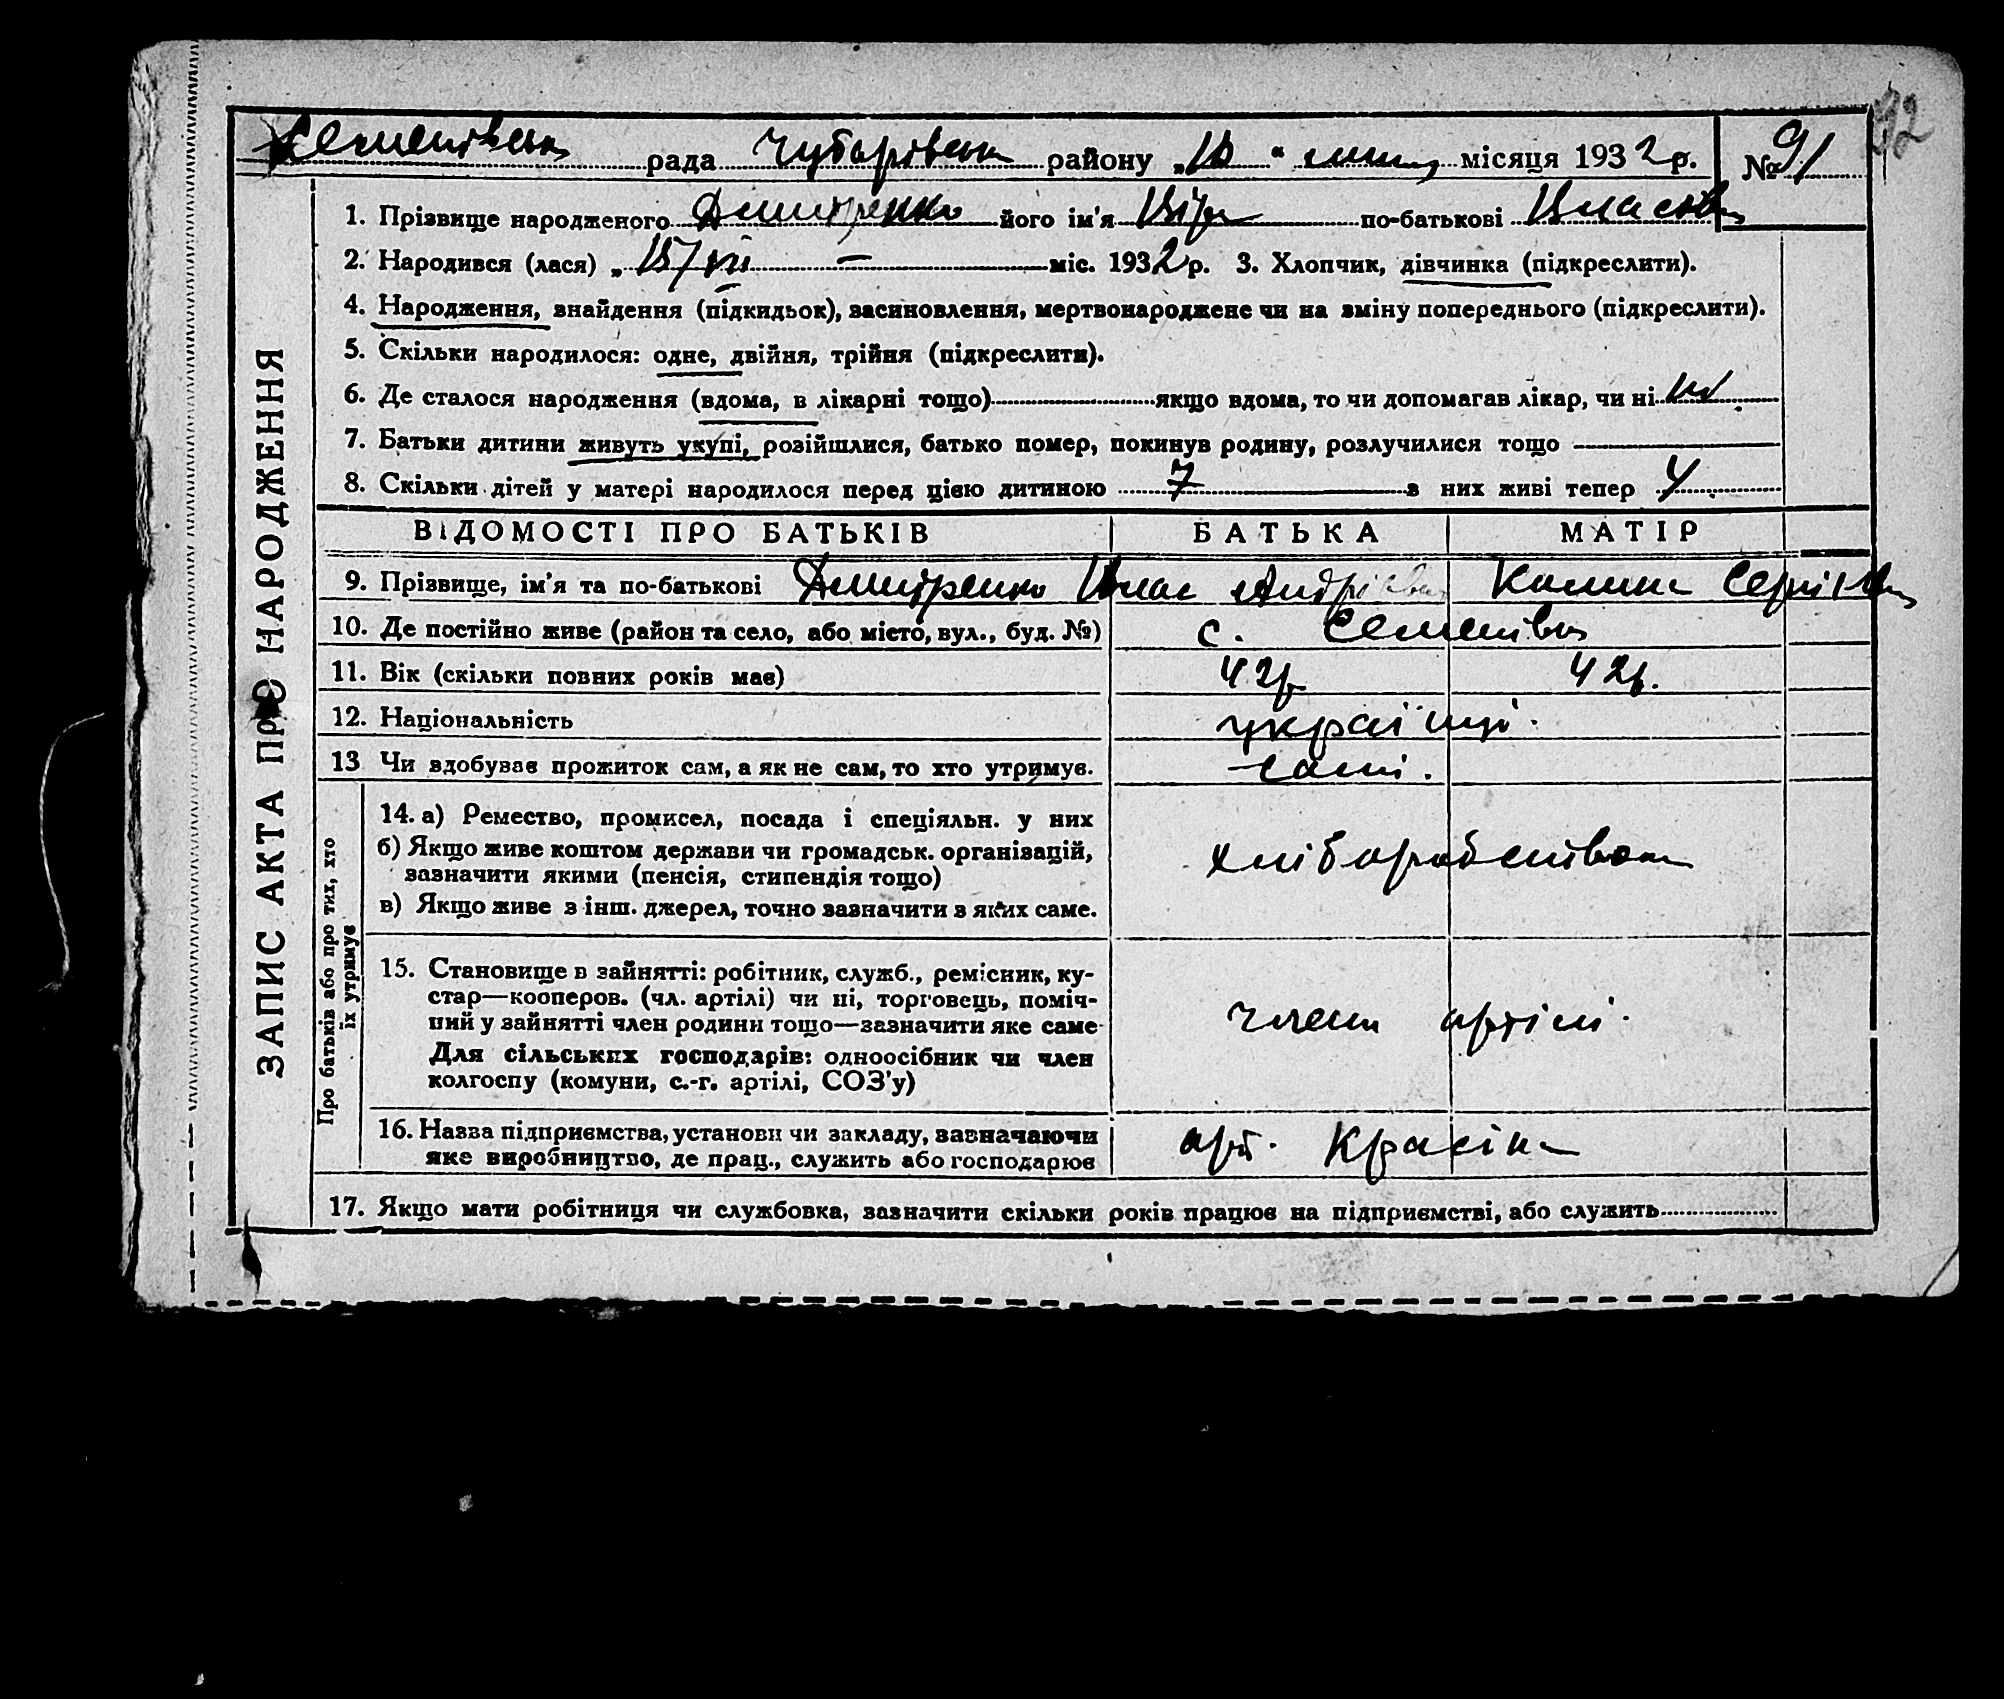 Семенівська рада Чубарівськ району „18“ липня місяця 1932 р. № 91
92
ЗАПИС АКТА ПРО НАРОДЖЕННЯ
1. Прізвище народженого Дмитренко його ім'я Віра по-батькові Власовна
2. Народився (лася) „ 15/VII — міс. 1932 р. 3. Хлопчик, дівчинка (підкреслити).
4. Народження, знайдення (підкидьок), засиновлення, мертвонароджене чи на зміну попереднього (підкреслити).
5. Скільки народилося: одне, двійня, трійня (підкреслити).
6. Де сталося народження (вдома, в лікарні тощо) якщо вдома, то чи допомагав лікар, чи ні ні.
7. Батьки дитини живуть укупі, розійшлися, батько помер, покинув родину, розлучилися тощо
8. Скільки дітей у матері народилося перед цією дитиною 7 з них живі тепер 4
ВІДОМОСТІ ПРО БАТЬКІВ БАТЬКА МАТІР
9. Прізвище, ім'я та по-батькові Дмитренко Влас Андрієвич Калина Сергіївна
10. Де постійно живе (район та село, або місто, вул., буд. №) с. Семенівка
11. Вік (скільки повних років має) 42р 42р.
12. Національність українці.
13 Чи здобуває прожиток сам, а як не сам, то хто утримує. самі.
Про батьків або про тих, хто їх утримує
14. а) Ремество, промисел, посада і спеціяльн. у них
б) Якщо живе коштом держави чи громадськ. організацій,
зазначити якими (пенсія, стипендія тощо)
в) Якщо живе з інш. джерел, точно зазначити з яких саме.
хліборобством
15. Становище в зайнятті: робітник, служб., ремісник, ку-
стар—кооперов. (чл. артілі) чи ні, торговець, поміч-
ний у зайнятті член родини тощо—зазначити яке саме
Для сільських господарів: одноосібник чи член
колгоспу (комуни, с.-г. артілі, СОЗ'у)
член артілі.
16. Назва підприємства, установи чи закладу, зазначаючи
яке виробництво, де прац., служить або господарює
арт. Красіна
17. Якщо мати робітниця чи службовка, зазначити скільки років працює на підприємстві, або служить